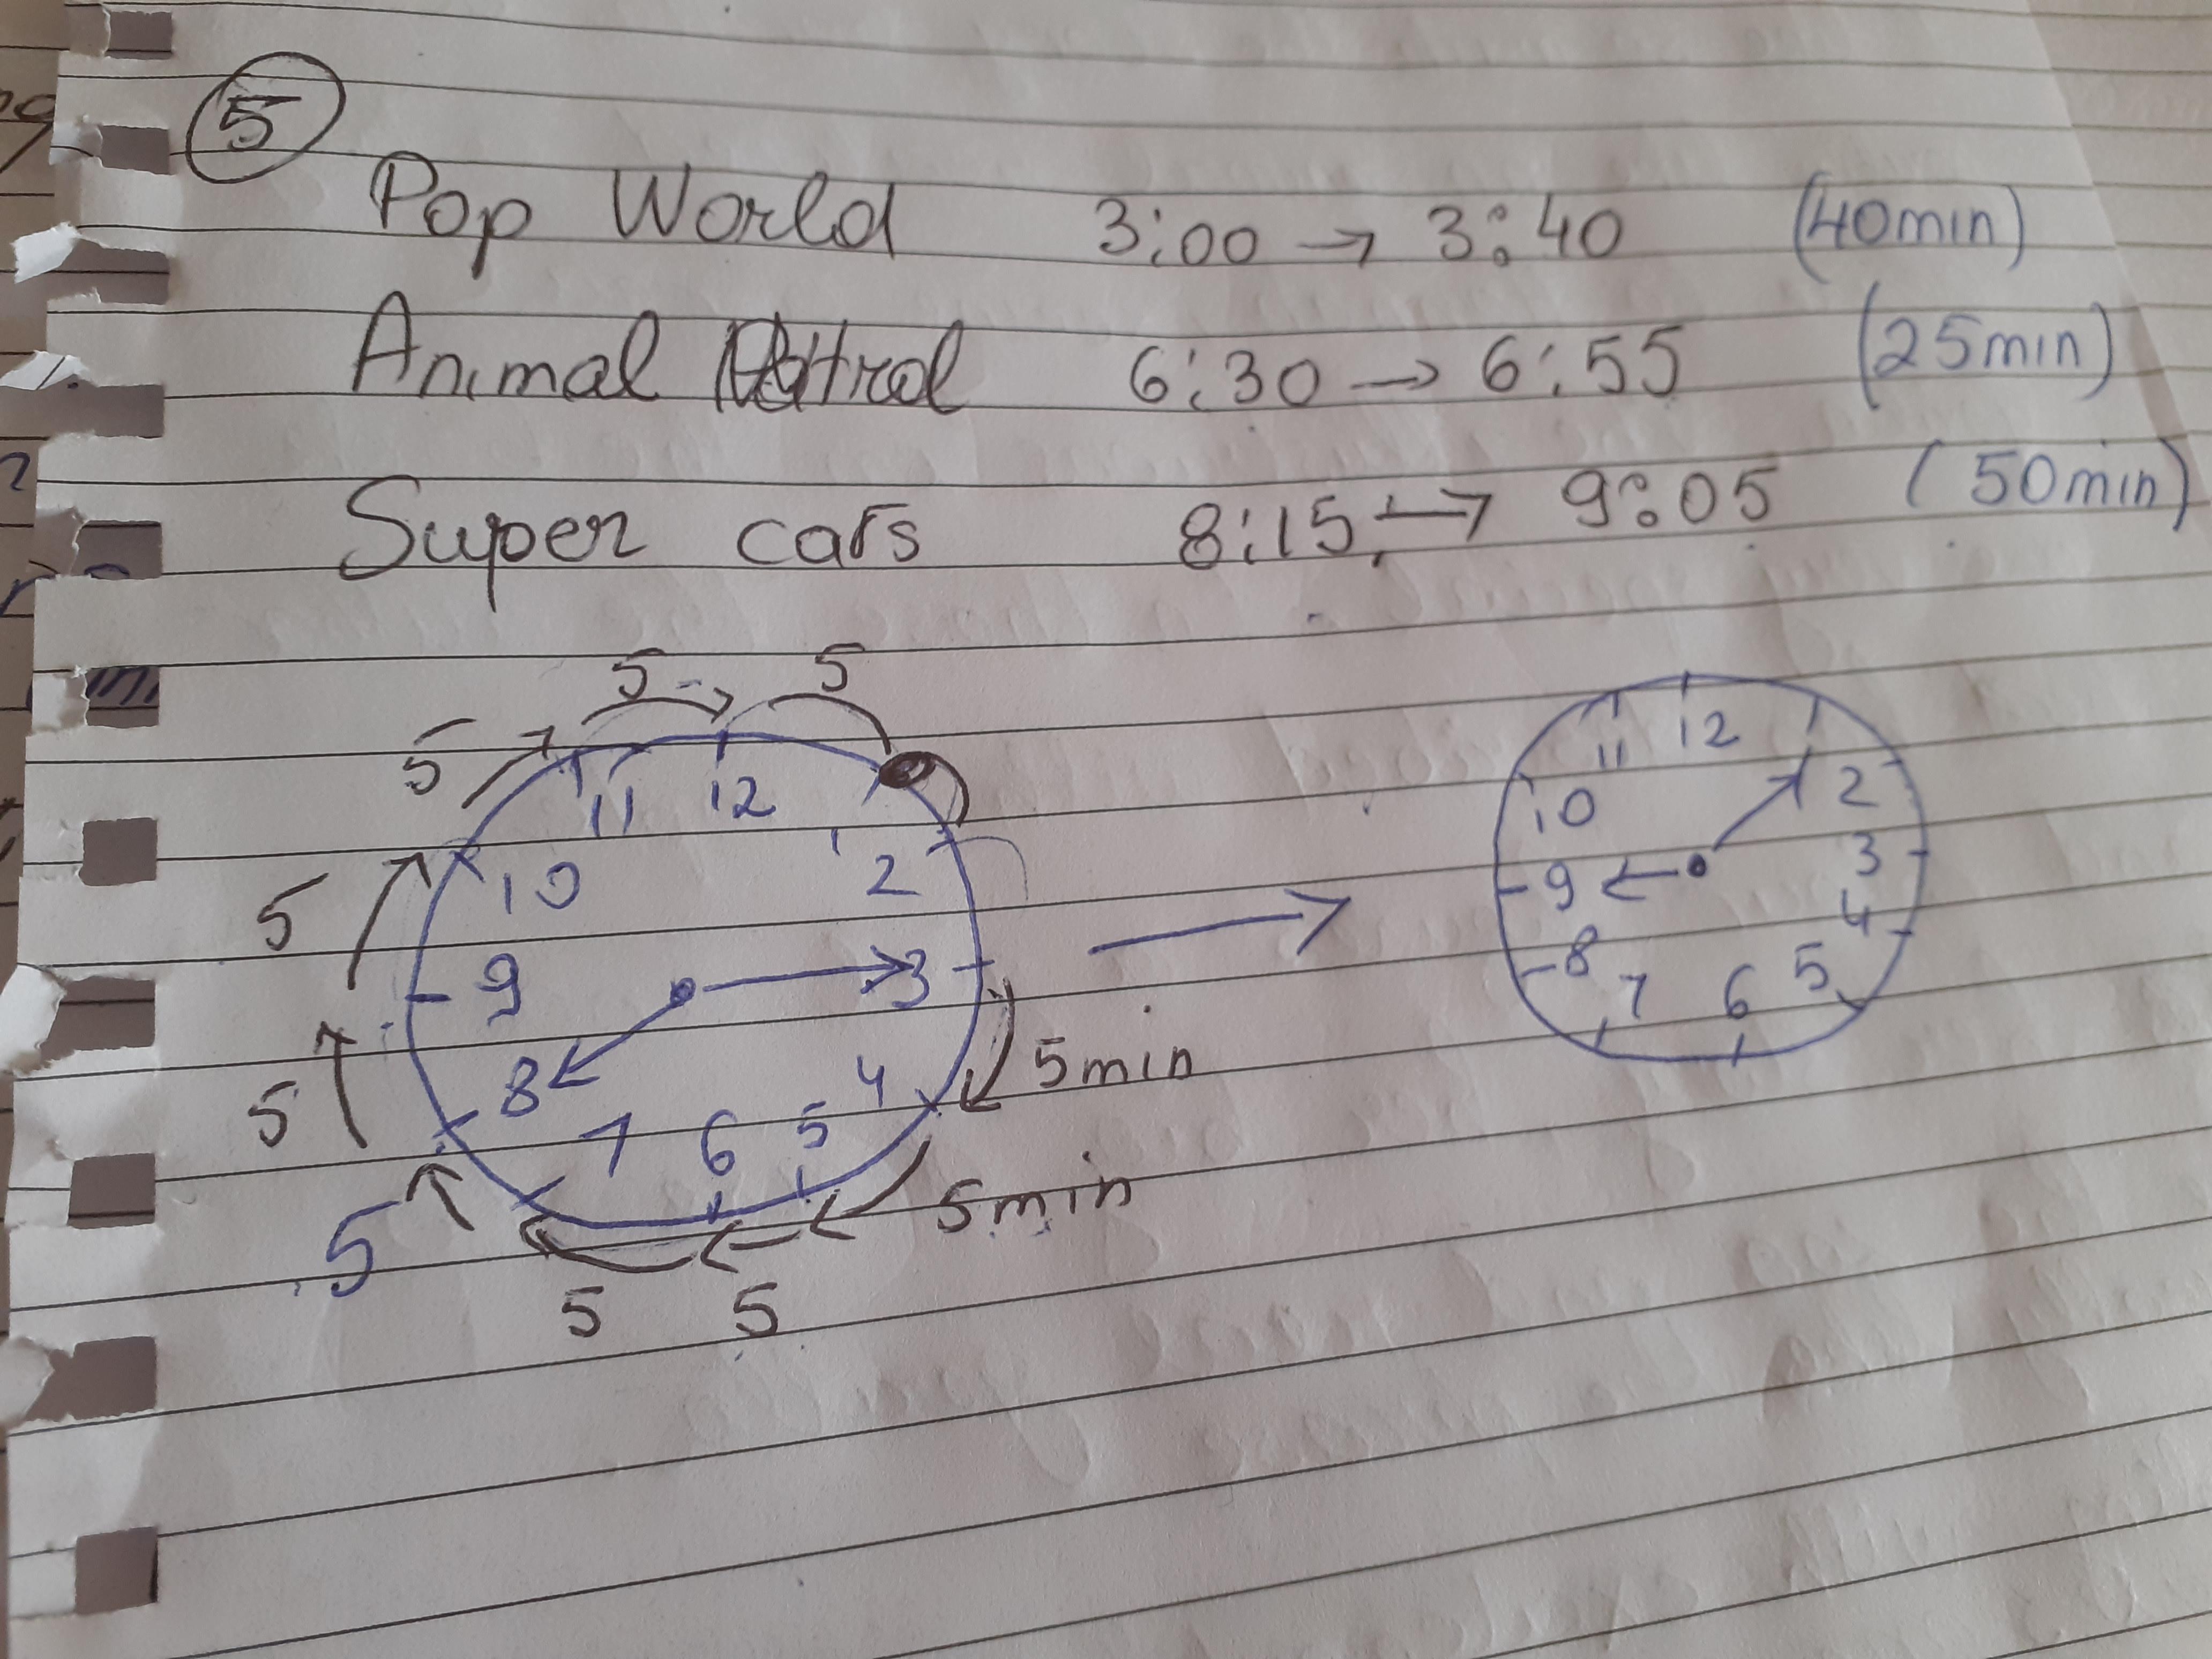 5
Pop World 3:00 → 3:40 (40min)
Animal Patrol 6:30 → 6:55 (25min)
Super cars 8:15 → 9:05 (50min)
5 5
5
11 12 1
10 2
5
9 3
5 min
8 4
5
7 6 5
5 min
5
5 5
11 12
10 2
9 3
8 4
7 6 5